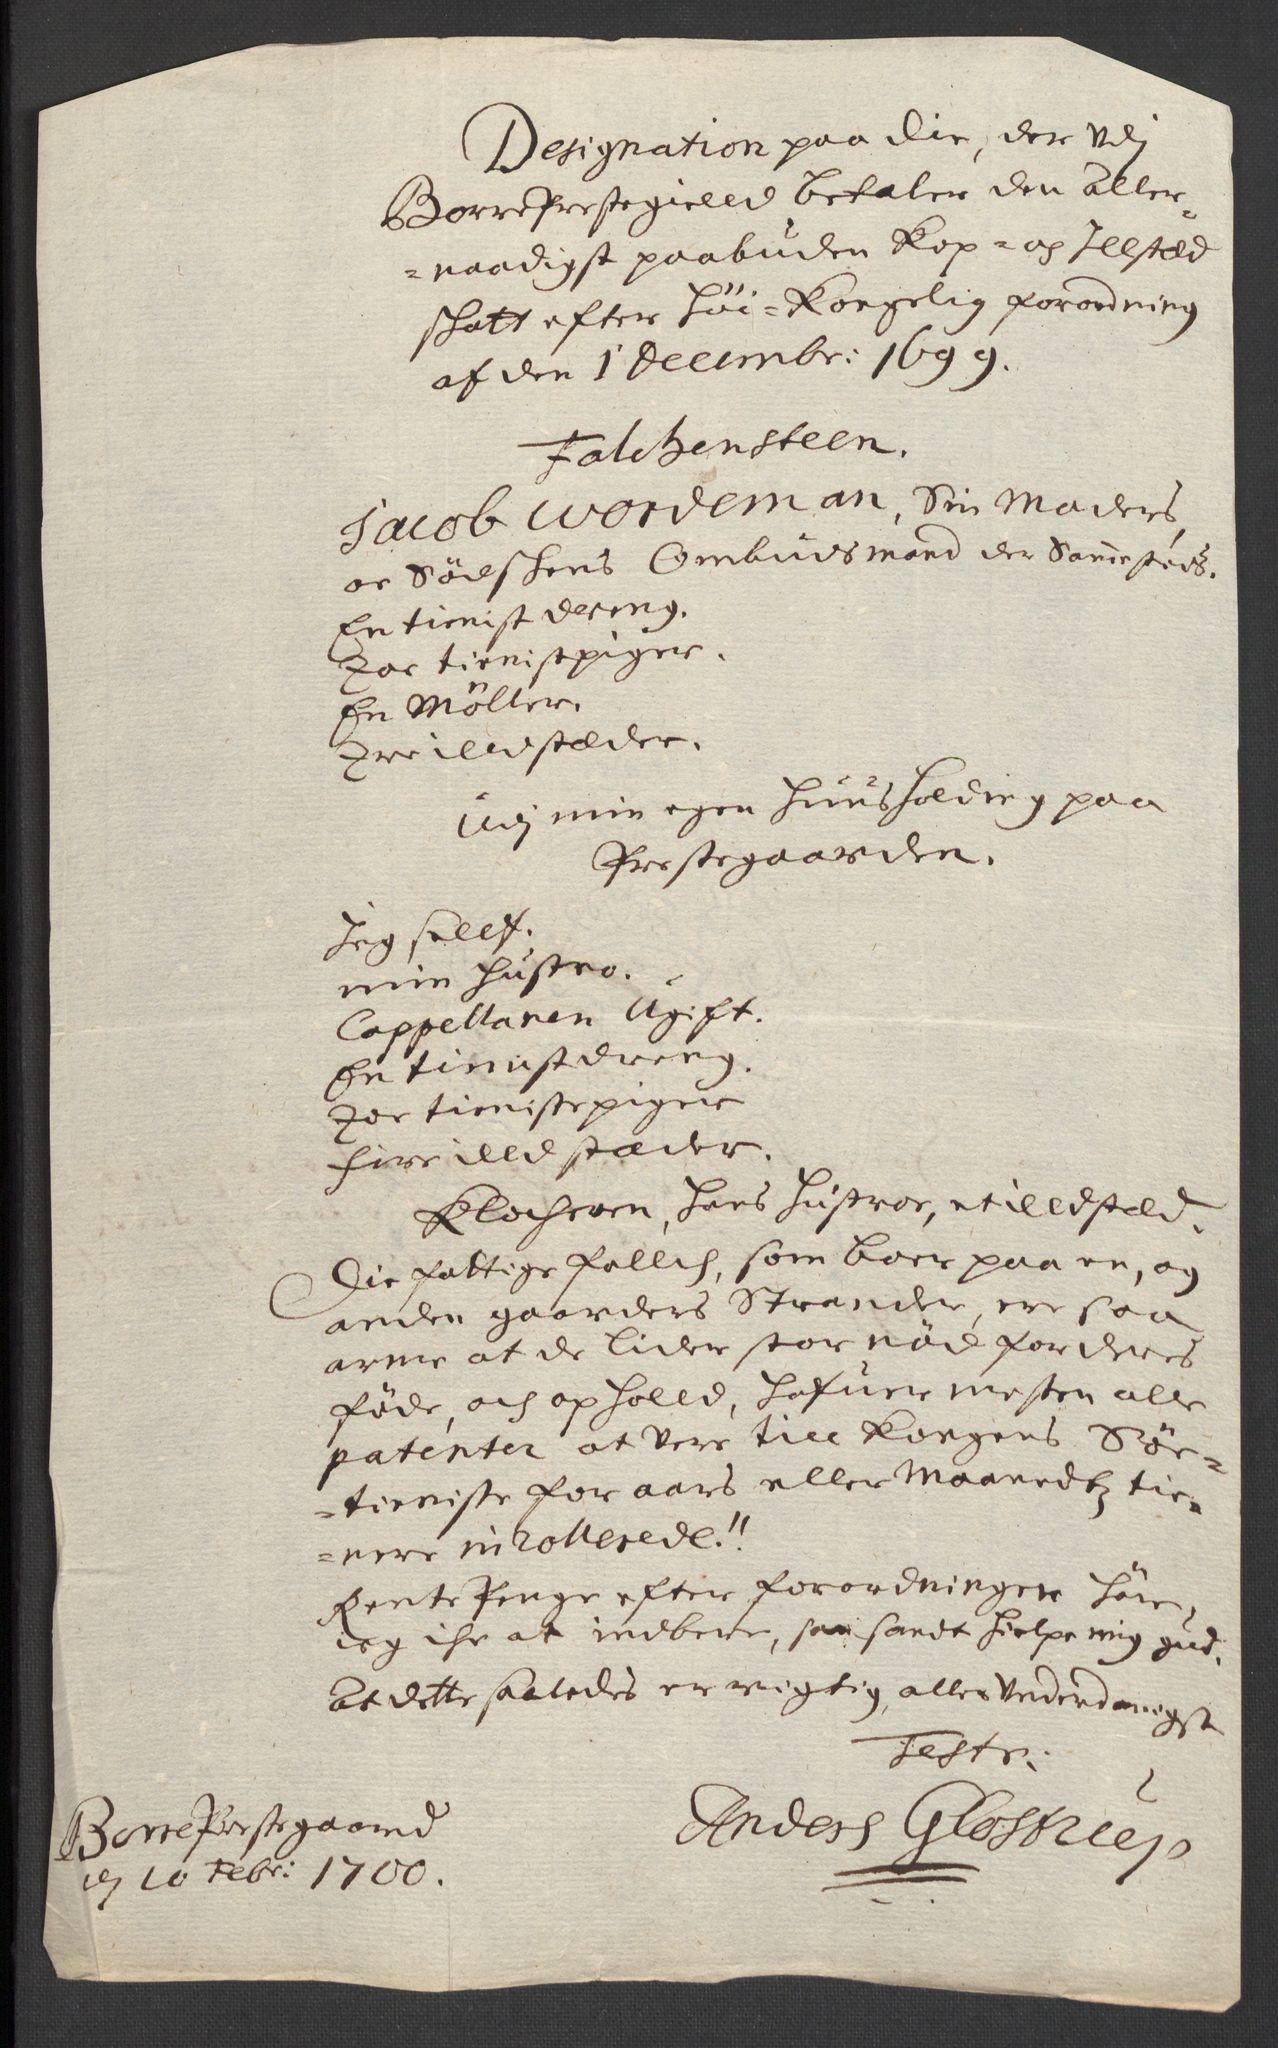 Designation paa Die, der Udj
Borre Prestegielld betaler den Aller-
=naadigst paabuden Kop= og Illstæd
skatt efter Höi=Kongelig forordning
af den 1 Decembr: 1699.
Falchensteen.
Jacob Wordeman, Sin Moders,
oc Södskens Ombudsmand der Sammesteds.
En tienist dreng.
Toe tienistpiger.
En Möller.
Tre illdstæder.
Udj min egen huusholding paa
Prestegaarden.
Jeg sellf.
min hustro.
Cappellanen Ugift.
En tienistdreng.
Toe tienistepiger
fire illdstæder.
Klocheren, hans hustroe, et illdstæd.
Die fattige follch, som boer paa en, og
anden gaarders Strander, ere saa
arme at de lider stor nöd for deres
föde, och opholld, hafuer mesten alle
patenter at vere till Kongens Söe-
=tieniste for aars eller Maanedtz tie-
=nere inrollerede.!!
Rente Penge efter forordningen haver
ieg iche at indbere, saa sandt hielpe mig gud.
At dette saaledes er rigtig, allerUnderdanigst
Tester:
Anders Glostrup
Borre Prestegaard
dj 10 Febr: 1700.